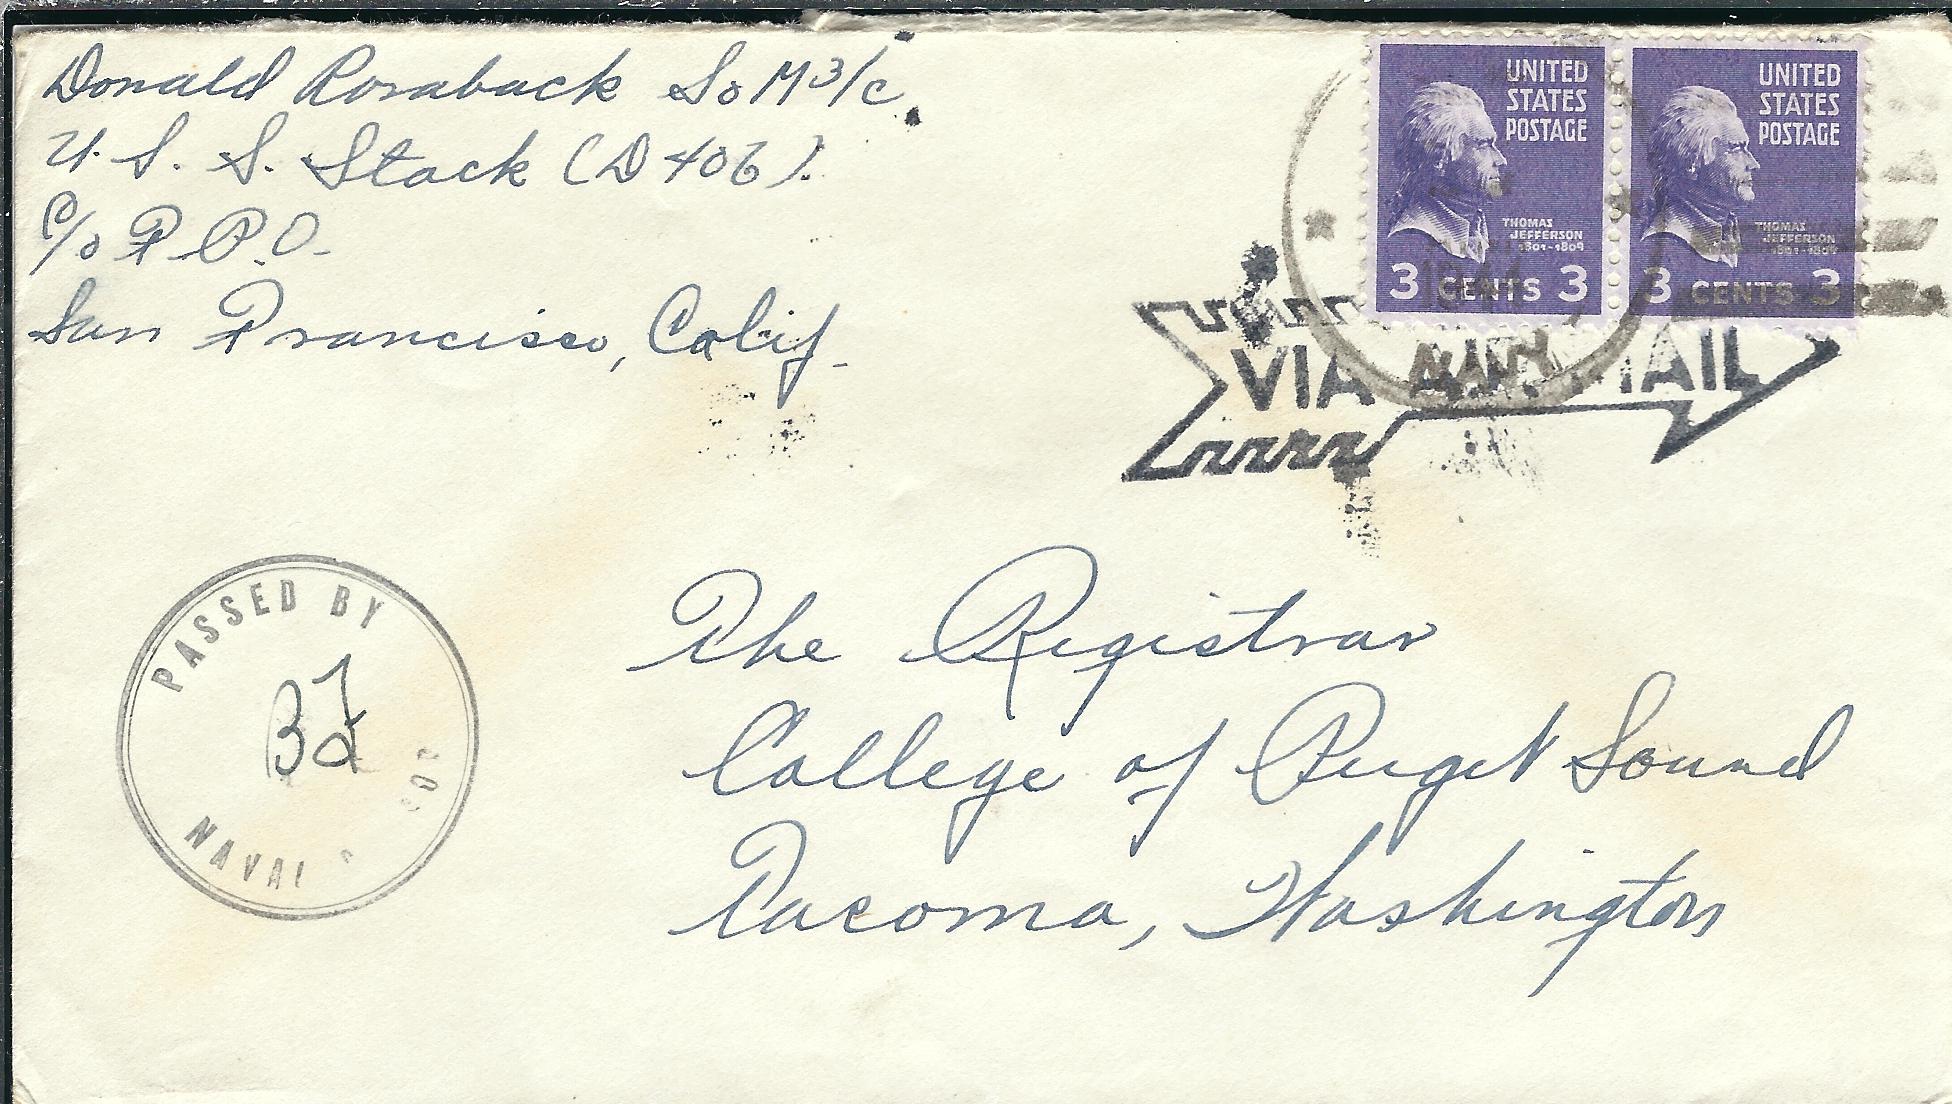 Donald Roraback SoM 3/c
U. S. S. Stack (D 406).
c/o F. P. O.
San Francisco, Calif.
UNITED
STATES
POSTAGE
THOMAS
JEFFERSON
1801-1809
3 CENTS 3
UNITED
STATES
POSTAGE
THOMAS
JEFFERSON
1801-1809
3 CENTS 3
1944
VIA AIR MAIL
PASSED BY
NAVAL
The Registrar
College of Puget Sound
Tacoma, Washington